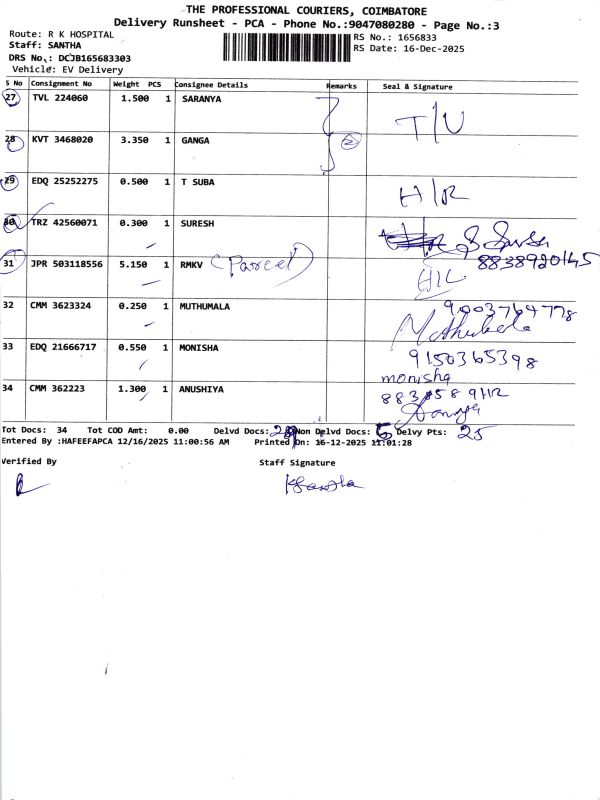 THE PROFESSIONAL COURIERS, COIMBATORE
Delivery Runsheet - PCA - Phone No.:9047080280 - Page No.:3
Route: R K HOSPITAL
RS No.: 1656833
Staff: SANTHA
RS Date: 16-Dec-2025
DRS No.: DCJB165683303
Vehicle: EV Delivery
S No Consignment No Weight PCS Consignee Details Remarks Seal & Signature
27 TVL 224060 1.500 1 SARANYA T/U
28 KVT 3468020 3.350 1 GANGA 2
29 EDQ 25252275 0.500 1 T SUBA H/R
30 TRZ 42560071 0.300 1 SURESH
8838920145
31 JPR 503118556 5.150 1 RMKV (Parcel) H/L
32 CMM 3623324 0.250 1 MUTHUMALA 9003764778
33 EDQ 21666717 0.550 1 MONISHA 9150365398
monisha
34 CMM 362223 1.300 1 ANUSHIYA
Tot Docs: 34 Tot COD Amt: 0.00 Delvd Docs: Non Delvd Docs: Delvy Pts: 25
Entered By :HAFEEFAPCA 12/16/2025 11:00:56 AM Printed On: 16-12-2025 11:01:28
Verified By Staff Signature